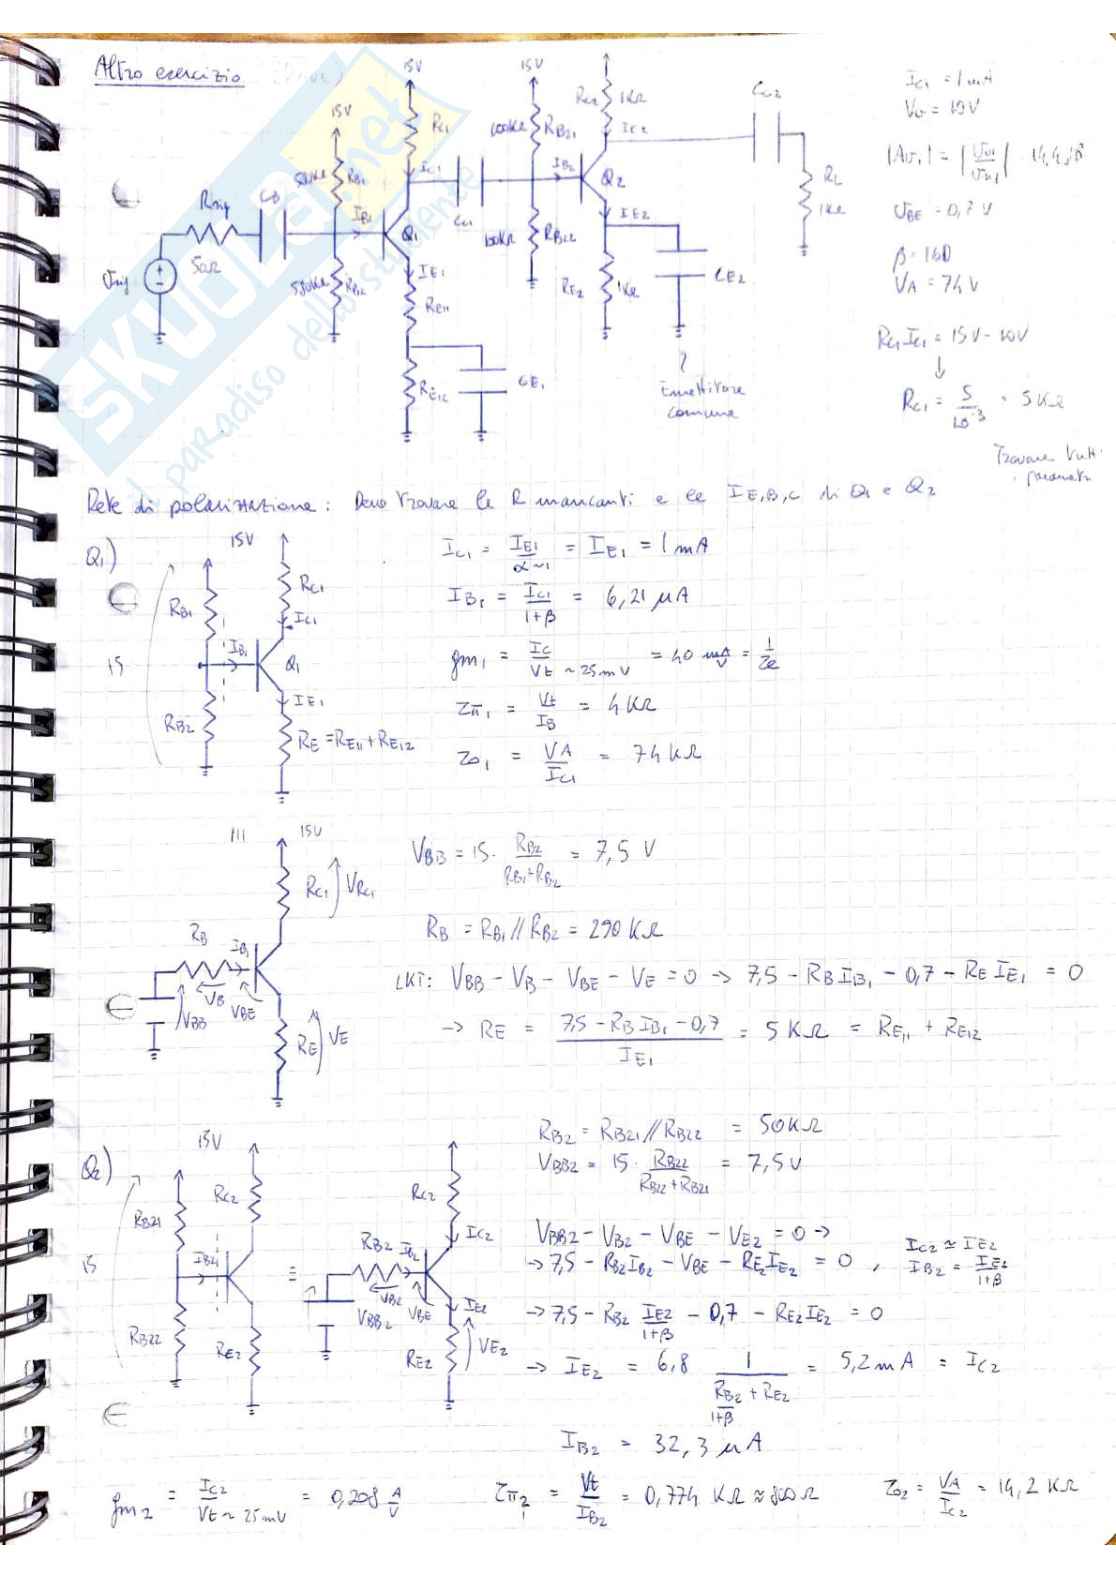 Altro esercizio
15V
15V
15V
RC2 1KΩ
RC1
100KΩ RB21
IC2
CC2
580KΩ RB1
IC1
IB2
Q2
RL
1KΩ
Rsig
CB
IB1
Q1
CC1
100KΩ RB22
IE2
50Ω
IE1
580KΩ RB2
Vsig
RE11
RE2 1KΩ
CE2
RE12
CE1
?
Emettitore
comune
IC1 = 1mA
VC1 = 10V
|Av1| = |Vo1/Vin1| 14,4
VBE = 0,7V
β = 160
VA = 74V
RC1IC1 = 15V - 10V
↓
RC1 = 5/10⁻³ = 5KΩ
Trovare tutti
i parametri
SKUOLA.net
il paradiso dello studente
Rete di polarizzazione: Devo trovare le R mancanti e le IE,B,C di Q1 e Q2
Q1)
15V
RC1
RB1
IC1
15
IB1
Q1
IE1
RB2
RE = RE11 + RE12
IC1 = IE1/α~1 = IE1 = 1mA
IB1 = IC1/1+β = 6,21 μA
gm1 = IC/Vt ~ 25mV = 40 mA/V = 1/re
rπ1 = Vt/IB = 4KΩ
ro1 = VA/IC1 = 74KΩ
15V
RC1 VRC1
RB IB1
VB VBE
VBB
RE VE
VBB = 15 · RB2/RB1+RB2 = 7,5 V
RB = RB1//RB2 = 290KΩ
LKT: VBB - VB - VBE - VE = 0 → 7,5 - RBIB1 - 0,7 - REIE1 = 0
→ RE = 7,5 - RBIB1 - 0,7/IE1 = 5KΩ = RE11 + RE12
Q2)
15V
RC2
RB21
15
IB2
RB22
RE2
=
RC2
IC2
RB2 IB2
VB2 VBE
VBB2
IE2
RE2 VE2
RB2 = RB21//RB22 = 50KΩ
VBB2 = 15 · RB22/RB22+RB21 = 7,5V
VBB2 - VB2 - VBE - VE2 = 0 →
→ 7,5 - RB2IB2 - VBE - RE2IE2 = 0 , IC2 ≃ IE2
IB2 = IE2/1+β
→ 7,5 - RB2 IE2/1+β - 0,7 - RE2IE2 = 0
→ IE2 = 6,8 1/RB2/1+β + RE2 = 5,2mA = IC2
IB2 = 32,3 μA
gm2 = IC2/Vt ~ 25mV = 0,208 A/V
rπ2 = Vt/IB2 = 0,774 KΩ ≈ 800Ω
ro2 = VA/IC2 = 14,2 KΩ